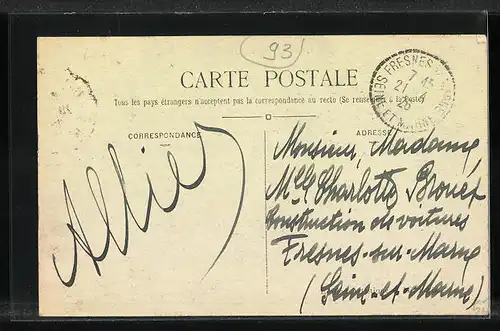 93
CARTE POSTALE
Tous les pays étrangers n'acceptent pas la correspondance au recto (Se renseigner à la Poste)
CORRESPONDANCE
ADRESSE
FRESNES
SEINE ET MARNE
7
21
26
Allier
Monsieur, Madame,
Mlle Charlotte Brouet
Construction de voitures
Fresnes-sur-Marne
(Seine-et-Marne)